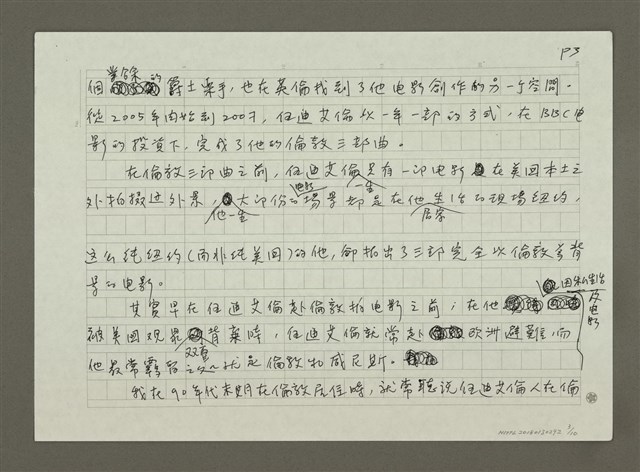 P3
個業餘的爵士樂手，也在英倫找到了他电影創作的另一个空間。
從2005年開始到2007，伍迪艾倫以一年一部的方式，在BBC电
影的投資下，完成了他的倫敦三部曲。
在倫敦三部曲之前，伍迪艾倫一生只有一部电影在美國本土之
外拍攝过外景，他一生大部份的电影場景都是在他生活的現場紐約，
居家
這么純紐約(而非純美國)的他，卻拍出了三部完全以倫敦為背
景的电影。
其實早在伍迪艾倫赴倫敦拍电影之前，在他因私生活及电影
被美國观眾背棄時，伍迪艾倫就常赴欧洲避難，而
他最常就是倫敦和威尼斯。
我在90年代末期在倫敦居住時，就常聽說伍迪艾倫人在倫
NMTL20140130292 3/10